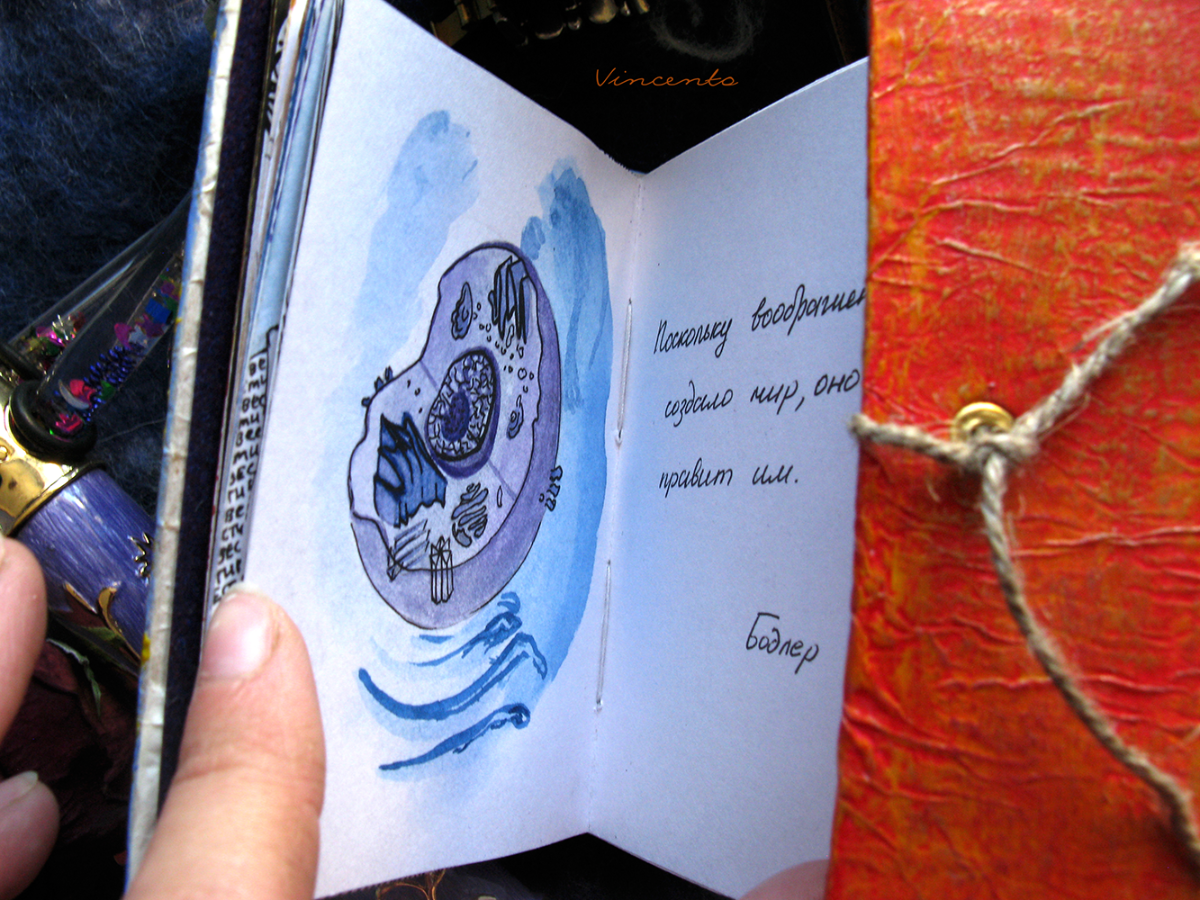 Vincento
Поскольку воображен
создало мир, оно
правит им.
Бодлер